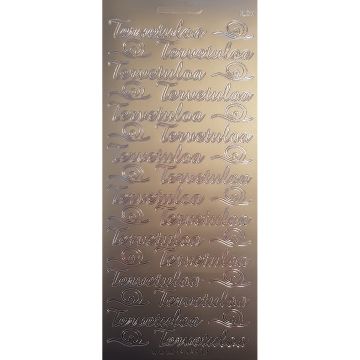 Tervetuloa
Tervetuloa
Tervetuloa
Tervetuloa
Tervetuloa
Tervetuloa
Tervetuloa
Tervetuloa
Tervetuloa
Tervetuloa
Tervetuloa
Tervetuloa
Tervetuloa
Tervetuloa
Tervetuloa
Tervetuloa